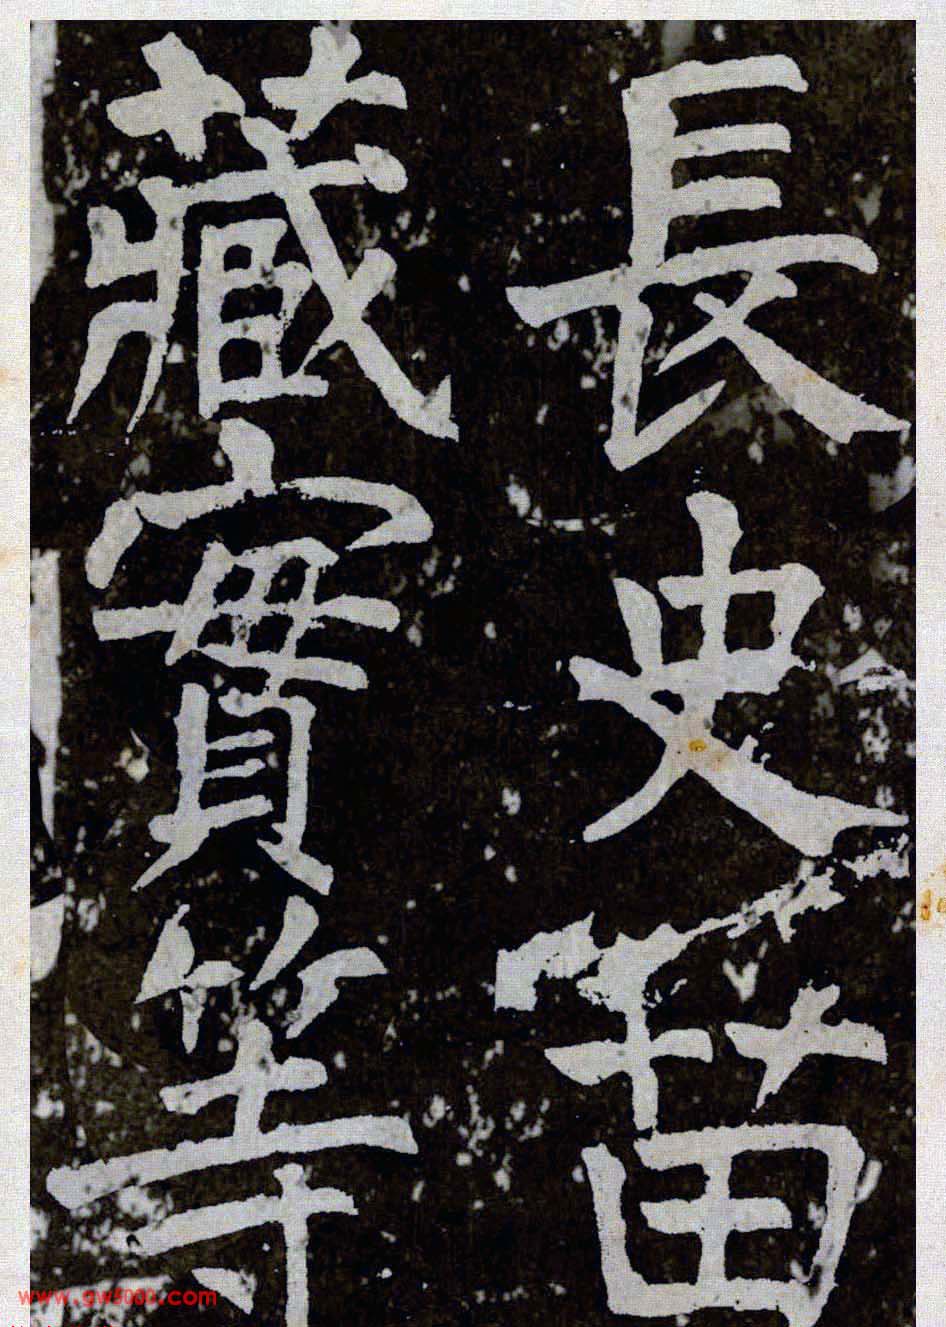 長史苗
藏實等
www.gw5000.com